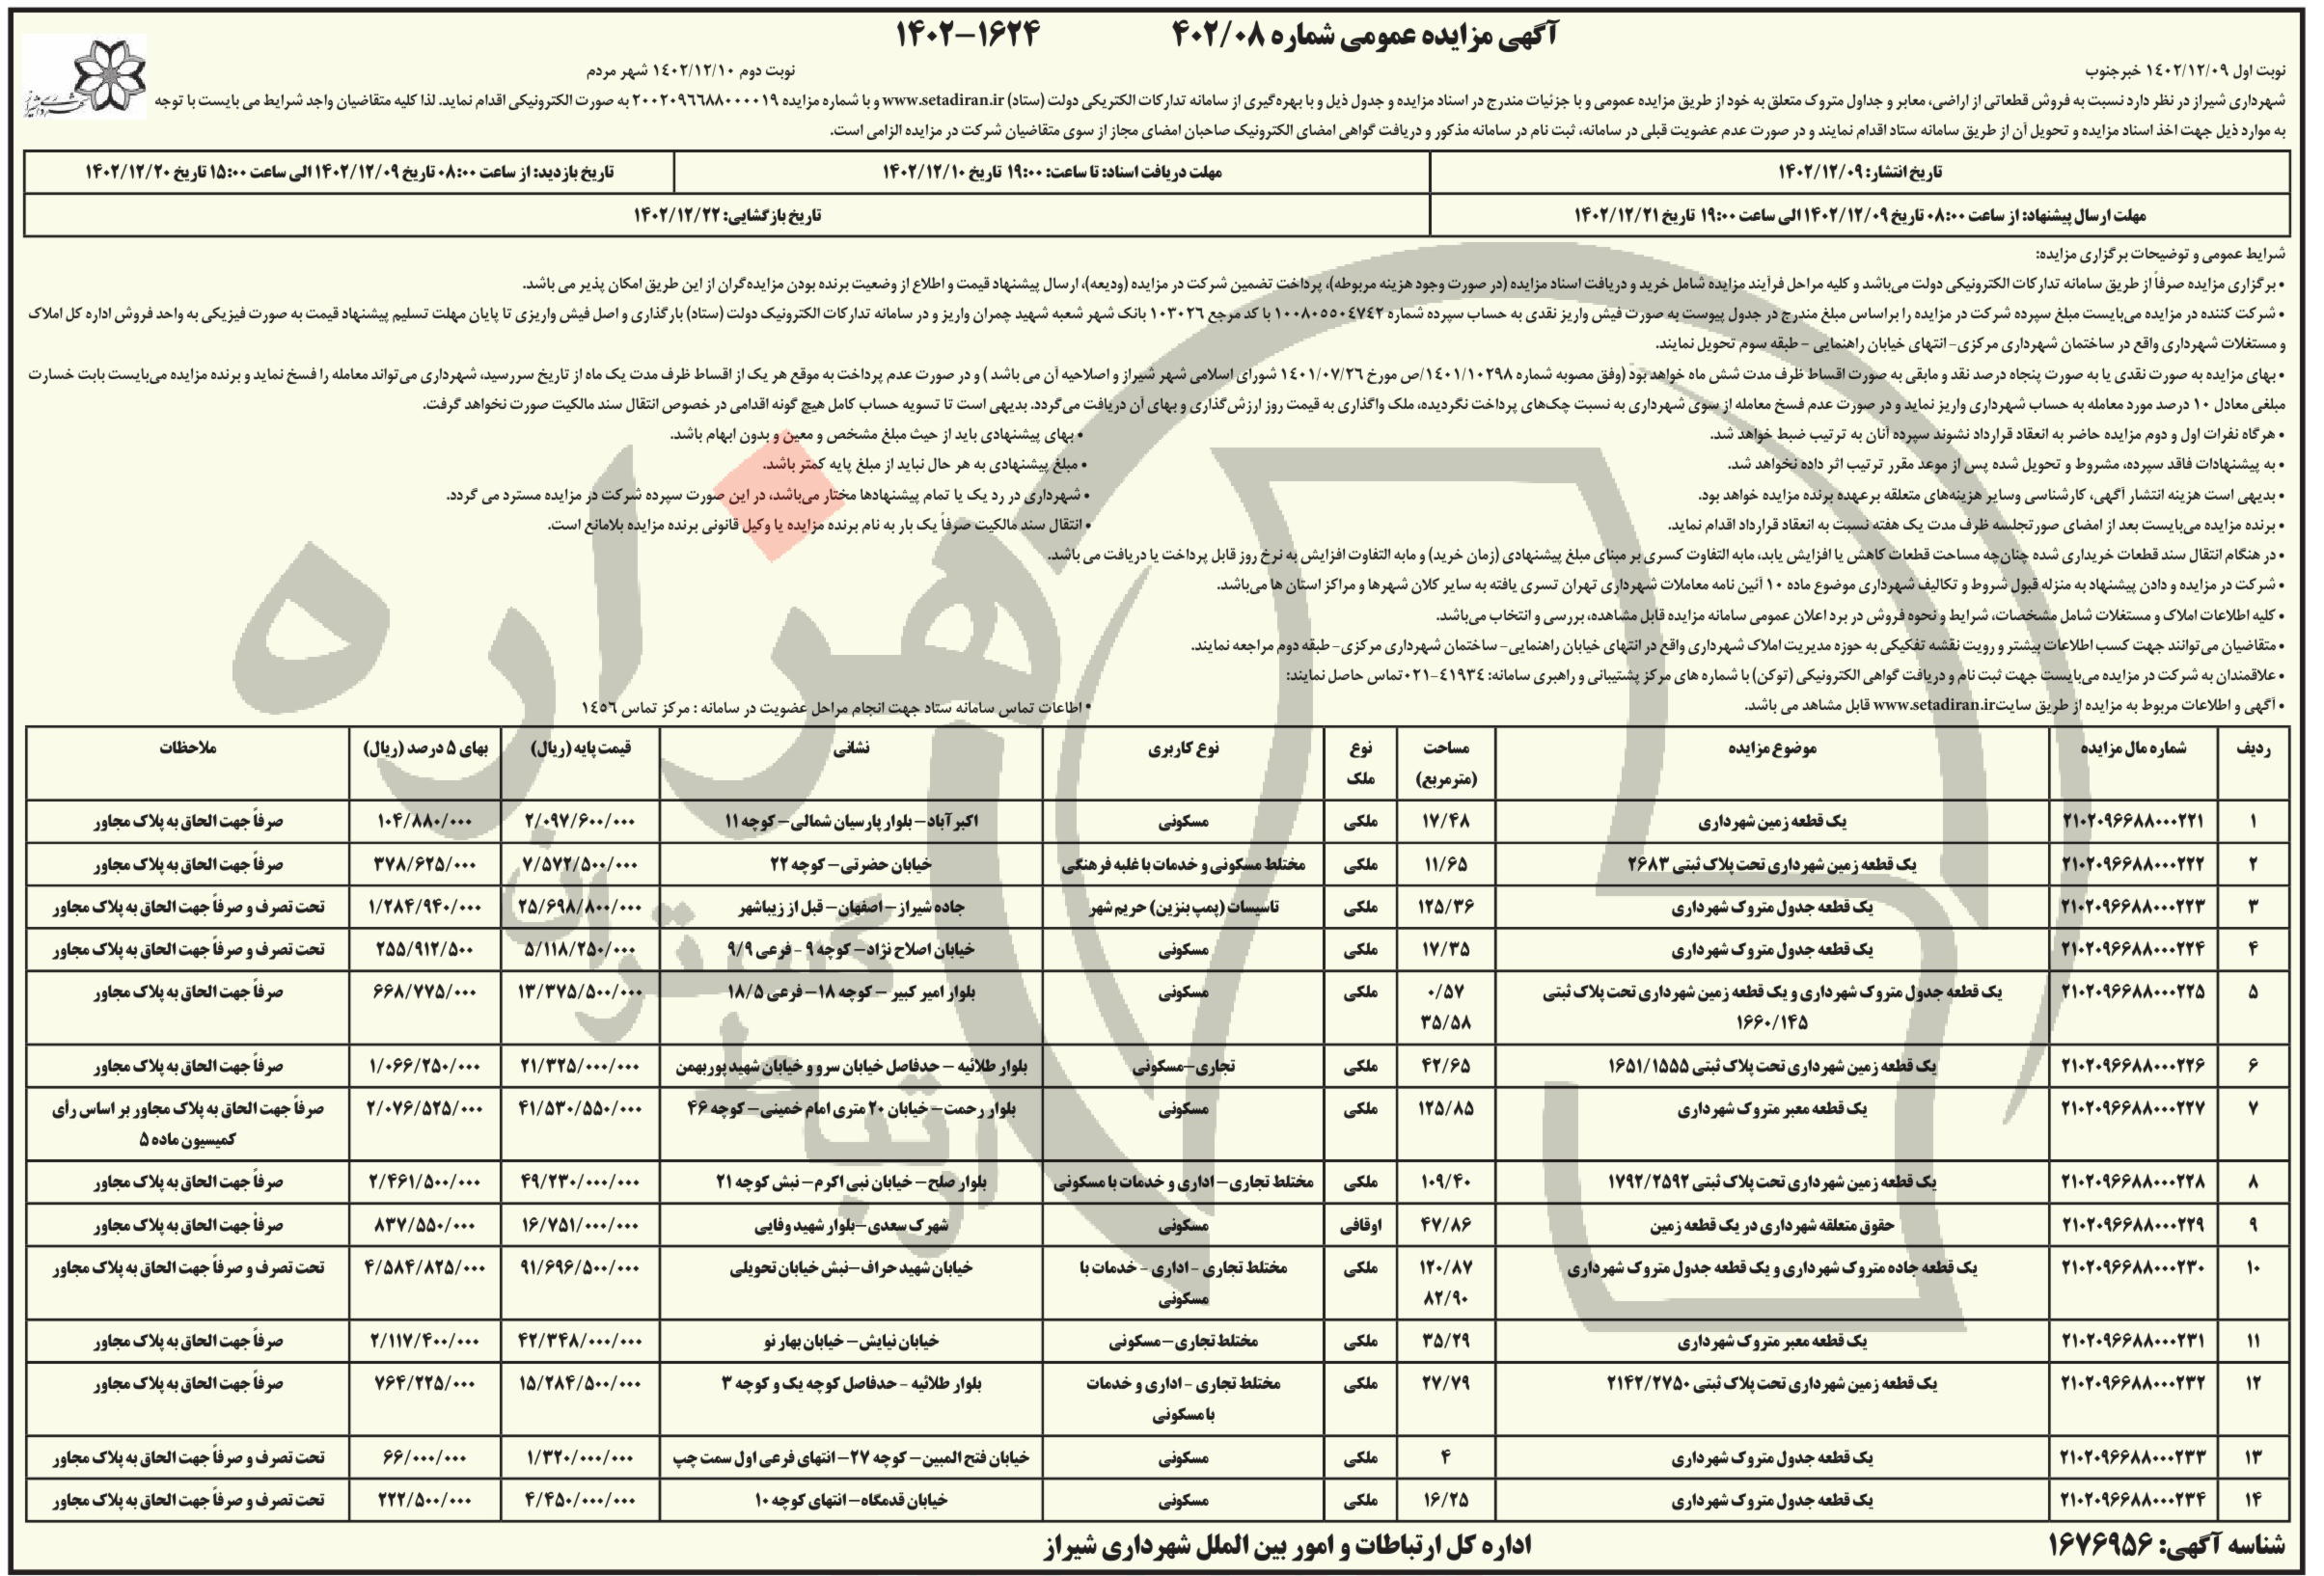 آگهی مزایده عمومی شماره ۴۰۲/۰۸ ۱۶۲۴-۱۴۰۲
نوبت اول ۱٤۰۲/۱۲/۰۹ خبرجنوب نوبت دوم ۱٤۰۲/۱۲/۱۰ شهر مردم
شهرداری شیراز در نظر دارد نسبت به فروش قطعاتی از اراضی، معابر و جداول متروک متعلق به خود از طریق مزایده عمومی و با جزئیات مندرج در اسناد مزایده و جدول ذیل و با بهره‌گیری از سامانه تدارکات الکتریکی دولت (ستاد) www.setadiran.ir و با شماره مزایده ۲۰۰۲۰۹٦٦۸۸۰۰۰۰۱۹ به صورت الکترونیکی اقدام نماید. لذا کلیه متقاضیان واجد شرایط می بایست با توجه
به موارد ذیل جهت اخذ اسناد مزایده و تحویل آن از طریق سامانه ستاد اقدام نمایند و در صورت عدم عضویت قبلی در سامانه، ثبت نام در سامانه مذکور و دریافت گواهی امضای الکترونیک صاحبان امضای مجاز از سوی متقاضیان شرکت در مزایده الزامی است.
تاریخ انتشار: ۱۴۰۲/۱۲/۰۹ مهلت دریافت اسناد: تا ساعت: ۱۹:۰۰ تاریخ ۱۴۰۲/۱۲/۱۰ تاریخ بازدید: از ساعت ۰۸:۰۰ تاریخ ۱۴۰۲/۱۲/۰۹ الی ساعت ۱۵:۰۰ تاریخ ۱۴۰۲/۱۲/۲۰
مهلت ارسال پیشنهاد: از ساعت ۰۸:۰۰ تاریخ ۱۴۰۲/۱۲/۰۹ الی ساعت ۱۹:۰۰ تاریخ ۱۴۰۲/۱۲/۲۱ تاریخ بازگشایی: ۱۴۰۲/۱۲/۲۲
شرایط عمومی و توضیحات برگزاری مزایده:
• برگزاری مزایده صرفاً از طریق سامانه تدارکات الکترونیکی دولت می‌باشد و کلیه مراحل فرآیند مزایده شامل خرید و دریافت اسناد مزایده (در صورت وجود هزینه مربوطه)، پرداخت تضمین شرکت در مزایده (ودیعه)، ارسال پیشنهاد قیمت و اطلاع از وضعیت برنده بودن مزایده‌گران از این طریق امکان پذیر می باشد.
• شرکت کننده در مزایده می‌بایست مبلغ سپرده شرکت در مزایده را براساس مبلغ مندرج در جدول پیوست به صورت فیش واریز نقدی به حساب سپرده شماره ۱۰۰۸۰۵۵۰٤۷٤۲ با کد مرجع ۱۰۳۰۲٦ بانک شهر شعبه شهید چمران واریز و در سامانه تدارکات الکترونیک دولت (ستاد) بارگذاری و اصل فیش واریزی تا پایان مهلت تسلیم پیشنهاد قیمت به صورت فیزیکی به واحد فروش اداره کل املاک
و مستغلات شهرداری واقع در ساختمان شهرداری مرکزی- انتهای خیابان راهنمایی - طبقه سوم تحویل نمایند.
• بهای مزایده به صورت نقدی یا به صورت پنجاه درصد نقد و مابقی به صورت اقساط ظرف مدت شش ماه خواهد بود (وفق مصوبه شماره ۱٤۰۱/۱۰۲۹۸/ص مورخ ۱٤۰۱/۰۷/۲٦ شورای اسلامی شهر شیراز و اصلاحیه آن می باشد ) و در صورت عدم پرداخت به موقع هر یک از اقساط ظرف مدت یک ماه از تاریخ سررسید، شهرداری می‌تواند معامله را فسخ نماید و برنده مزایده می‌بایست بابت خسارت
مبلغی معادل ۱۰ درصد مورد معامله به حساب شهرداری واریز نماید و در صورت عدم فسخ معامله از سوی شهرداری به نسبت چک‌های پرداخت نگردیده، ملک واگذاری به قیمت روز ارزش‌گذاری و بهای آن دریافت می‌گردد. بدیهی است تا تسویه حساب کامل هیچ گونه اقدامی در خصوص انتقال سند مالکیت صورت نخواهد گرفت.
• هرگاه نفرات اول و دوم مزایده حاضر به انعقاد قرارداد نشوند سپرده آنان به ترتیب ضبط خواهد شد. • بهای پیشنهادی باید از حیث مبلغ مشخص و معین و بدون ابهام باشد.
• به پیشنهادات فاقد سپرده، مشروط و تحویل شده پس از موعد مقرر ترتیب اثر داده نخواهد شد. • مبلغ پیشنهادی به هر حال نباید از مبلغ پایه کمتر باشد.
• بدیهی است هزینه انتشار آگهی، کارشناسی وسایر هزینه‌های متعلقه برعهده برنده مزایده خواهد بود. • شهرداری در رد یک یا تمام پیشنهادها مختار می‌باشد، در این صورت سپرده شرکت در مزایده مسترد می گردد.
• برنده مزایده می‌بایست بعد از امضای صورتجلسه ظرف مدت یک هفته نسبت به انعقاد قرارداد اقدام نماید. • انتقال سند مالکیت صرفاً یک بار به نام برنده مزایده یا وکیل قانونی برنده مزایده بلامانع است.
• در هنگام انتقال سند قطعات خریداری شده چنان‌چه مساحت قطعات کاهش یا افزایش یابد، مابه التفاوت کسری بر مبنای مبلغ پیشنهادی (زمان خرید) و مابه التفاوت افزایش به نرخ روز قابل پرداخت یا دریافت می باشد.
• شرکت در مزایده و دادن پیشنهاد به منزله قبول شروط و تکالیف شهرداری موضوع ماده ۱۰ آئین نامه معاملات شهرداری تهران تسری یافته به سایر کلان شهرها و مراکز استان ها می‌باشد.
• کلیه اطلاعات املاک و مستغلات شامل مشخصات، شرایط و نحوه فروش در برد اعلان عمومی سامانه مزایده قابل مشاهده، بررسی و انتخاب می‌باشد.
• متقاضیان می‌توانند جهت کسب اطلاعات بیشتر و رویت نقشه تفکیکی به حوزه مدیریت املاک شهرداری واقع در انتهای خیابان راهنمایی- ساختمان شهرداری مرکزی- طبقه دوم مراجعه نمایند.
• علاقمندان به شرکت در مزایده می‌بایست جهت ثبت نام و دریافت گواهی الکترونیکی (توکن) با شماره های مرکز پشتیبانی و راهبری سامانه: ٤۱۹۳٤-۰۲۱ تماس حاصل نمایند:
• آگهی و اطلاعات مربوط به مزایده از طریق سایت www.setadiran.ir قابل مشاهد می باشد. • اطاعات تماس سامانه ستاد جهت انجام مراحل عضویت در سامانه : مرکز تماس ۱٤٥٦
ردیف شماره مال مزایده موضوع مزایده مساحت (مترمربع) نوع ملک نوع کاربری نشانی قیمت پایه (ریال) بهای ۵ درصد (ریال) ملاحظات
۱ ۲۱۰۲۰۹۶۶۸۸۰۰۰۲۲۱ یک قطعه زمین شهرداری ۱۷/۴۸ ملکی مسکونی اکبرآباد- بلوار پارسیان شمالی- کوچه ۱۱ ۲/۰۹۷/۶۰۰/۰۰۰ ۱۰۴/۸۸۰/۰۰۰ صرفاً جهت الحاق به پلاک مجاور
۲ ۲۱۰۲۰۹۶۶۸۸۰۰۰۲۲۲ یک قطعه زمین شهرداری تحت پلاک ثبتی ۲۶۸۳ ۱۱/۶۵ ملکی مختلط مسکونی و خدمات با غلبه فرهنگی خیابان حضرتی- کوچه ۲۲ ۷/۵۷۲/۵۰۰/۰۰۰ ۳۷۸/۶۲۵/۰۰۰ صرفاً جهت الحاق به پلاک مجاور
۳ ۲۱۰۲۰۹۶۶۸۸۰۰۰۲۲۳ یک قطعه جدول متروک شهرداری ۱۲۵/۳۶ ملکی تاسیسات (پمپ بنزین) حریم شهر جاده شیراز- اصفهان- قبل از زیباشهر ۲۵/۶۹۸/۸۰۰/۰۰۰ ۱/۲۸۴/۹۴۰/۰۰۰ تحت تصرف و صرفاً جهت الحاق به پلاک مجاور
۴ ۲۱۰۲۰۹۶۶۸۸۰۰۰۲۲۴ یک قطعه جدول متروک شهرداری ۱۷/۳۵ ملکی مسکونی خیابان اصلاح نژاد- کوچه ۹ - فرعی ۹/۹ ۵/۱۱۸/۲۵۰/۰۰۰ ۲۵۵/۹۱۲/۵۰۰ تحت تصرف و صرفاً جهت الحاق به پلاک مجاور
۵ ۲۱۰۲۰۹۶۶۸۸۰۰۰۲۲۵ یک قطعه جدول متروک شهرداری و یک قطعه زمین شهرداری تحت پلاک ثبتی ۱۶۶۰/۱۴۵ ۰/۵۷ ۳۵/۵۸ ملکی مسکونی بلوار امیر کبیر - کوچه ۱۸- فرعی ۱۸/۵ ۱۳/۳۷۵/۵۰۰/۰۰۰ ۶۶۸/۷۷۵/۰۰۰ صرفاً جهت الحاق به پلاک مجاور
۶ ۲۱۰۲۰۹۶۶۸۸۰۰۰۲۲۶ یک قطعه زمین شهرداری تحت پلاک ثبتی ۱۶۵۱/۱۵۵۵ ۴۲/۶۵ ملکی تجاری-مسکونی بلوار طلائیه - حدفاصل خیابان سرو و خیابان شهید پوربهمن ۲۱/۳۲۵/۰۰۰/۰۰۰ ۱/۰۶۶/۲۵۰/۰۰۰ صرفاً جهت الحاق به پلاک مجاور
۷ ۲۱۰۲۰۹۶۶۸۸۰۰۰۲۲۷ یک قطعه معبر متروک شهرداری ۱۲۵/۸۵ ملکی مسکونی بلوار رحمت- خیابان ۲۰ متری امام خمینی- کوچه ۴۶ ۴۱/۵۳۰/۵۵۰/۰۰۰ ۲/۰۷۶/۵۲۵/۰۰۰ صرفاً جهت الحاق به پلاک مجاور بر اساس رأی کمیسیون ماده ۵
۸ ۲۱۰۲۰۹۶۶۸۸۰۰۰۲۲۸ یک قطعه زمین شهرداری تحت پلاک ثبتی ۱۷۹۲/۲۵۹۲ ۱۰۹/۴۰ ملکی مختلط تجاری- اداری و خدمات با مسکونی بلوار صلح- خیابان نبی اکرم- نبش کوچه ۲۱ ۴۹/۲۳۰/۰۰۰/۰۰۰ ۲/۴۶۱/۵۰۰/۰۰۰ صرفاً جهت الحاق به پلاک مجاور
۹ ۲۱۰۲۰۹۶۶۸۸۰۰۰۲۲۹ حقوق متعلقه شهرداری در یک قطعه زمین ۴۷/۸۶ اوقافی مسکونی شهرک سعدی-بلوار شهید وفایی ۱۶/۷۵۱/۰۰۰/۰۰۰ ۸۳۷/۵۵۰/۰۰۰ صرفاً جهت الحاق به پلاک مجاور
۱۰ ۲۱۰۲۰۹۶۶۸۸۰۰۰۲۳۰ یک قطعه جاده متروک شهرداری و یک قطعه جدول متروک شهرداری ۱۲۰/۸۷ ۸۲/۹۰ ملکی مختلط تجاری - اداری - خدمات با مسکونی خیابان شهید حراف-نبش خیابان تحویلی ۹۱/۶۹۶/۵۰۰/۰۰۰ ۴/۵۸۴/۸۲۵/۰۰۰ تحت تصرف و صرفاً جهت الحاق به پلاک مجاور
۱۱ ۲۱۰۲۰۹۶۶۸۸۰۰۰۲۳۱ یک قطعه معبر متروک شهرداری ۳۵/۲۹ ملکی مختلط تجاری-مسکونی خیابان نیایش- خیابان بهار نو ۴۲/۳۴۸/۰۰۰/۰۰۰ ۲/۱۱۷/۴۰۰/۰۰۰ صرفاً جهت الحاق به پلاک مجاور
۱۲ ۲۱۰۲۰۹۶۶۸۸۰۰۰۲۳۲ یک قطعه زمین شهرداری تحت پلاک ثبتی ۲۱۴۲/۲۷۵۰ ۲۷/۷۹ ملکی مختلط تجاری - اداری و خدمات با مسکونی بلوار طلائیه - حدفاصل کوچه یک و کوچه ۳ ۱۵/۲۸۴/۵۰۰/۰۰۰ ۷۶۴/۲۲۵/۰۰۰ صرفاً جهت الحاق به پلاک مجاور
۱۳ ۲۱۰۲۰۹۶۶۸۸۰۰۰۲۳۳ یک قطعه جدول متروک شهرداری ۴ ملکی مسکونی خیابان فتح المبین- کوچه ۲۷- انتهای فرعی اول سمت چپ ۱/۳۲۰/۰۰۰/۰۰۰ ۶۶/۰۰۰/۰۰۰ تحت تصرف و صرفاً جهت الحاق به پلاک مجاور
۱۴ ۲۱۰۲۰۹۶۶۸۸۰۰۰۲۳۴ یک قطعه جدول متروک شهرداری ۱۶/۲۵ ملکی مسکونی خیابان قدمگاه- انتهای کوچه ۱۰ ۴/۴۵۰/۰۰۰/۰۰۰ ۲۲۲/۵۰۰/۰۰۰ تحت تصرف و صرفاً جهت الحاق به پلاک مجاور
شناسه آگهی: ۱۶۷۶۹۵۶ اداره کل ارتباطات و امور بین الملل شهرداری شیراز
هزاره